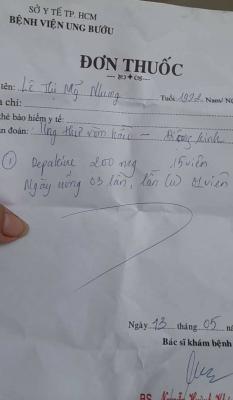 SỞ Y TẾ TP. HCM
BỆNH VIỆN UNG BƯỚU
ĐƠN THUỐC
tên: Lê Thị Mỹ Nhung Tuổi: Nam/Nữ
a chỉ:
thẻ bảo hiểm y tế:
n đoán: Ung thư vòm hầu – Động kinh
① Depakine 200 mg 15 viên
Ngày uống 03 lần, lần (u) 01 viên
Ngày 13 tháng 05 n
Bác sĩ khám bệnh
BS. Nguyễn Huỳnh